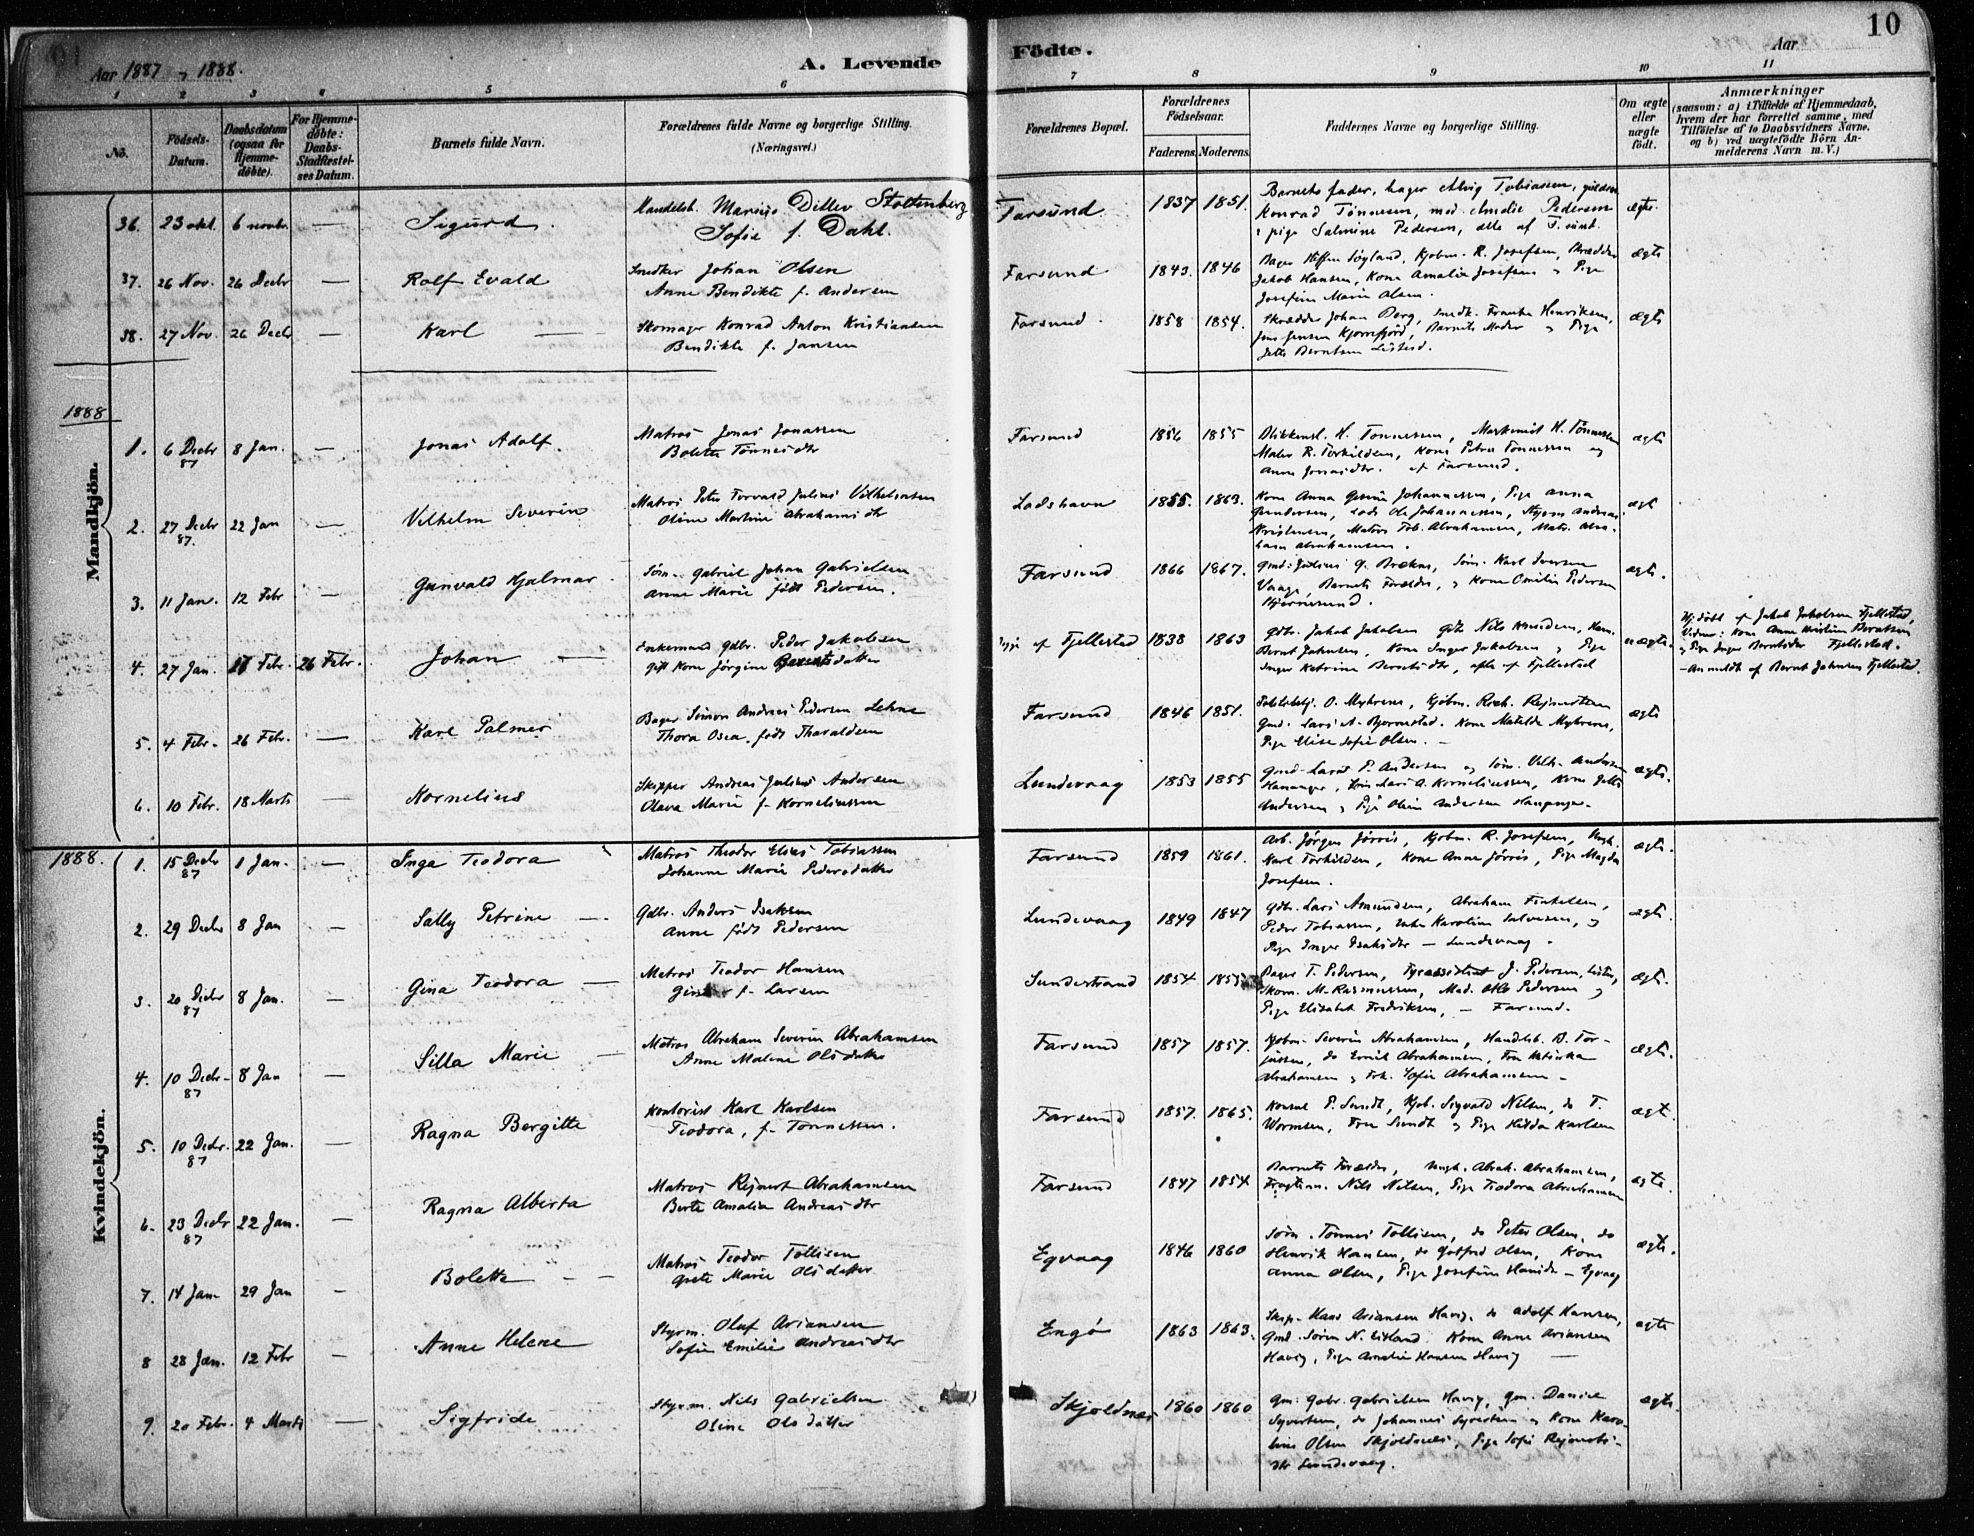 Aar 1887 og 1888.
A. Levende
Födte.
Aar
10
1 2 3 4 5 6 7 8 9 10 11
No.
Födsels-Datum.
Daabsdatum (ogsaa for Hjemme-döbte).
For Hjemme-döbte: Daabs-Stadfæstel-ses Datum.
Barnets fulde Navn.
Forældrenes fulde Navne og borgerlige Stilling. (Næringsvei.)
Forældrenes Bopæl.
Forældrenes Födselsaar.
Faderens. Moderens.
Faddernes Navne og borgerlige Stilling.
Om ægte eller uægte födt.
Anmærkninger
(saasom: a) i Tilfælde af Hjemmedaab,
hvem der har forrettet samme, med
Tilföielse af to Daabsvidners Navne.
og b) ved uægtefödte Börn An-
melderens Navn m. V.)
36. 23 okt. 6 novbr. — Sigurd. Handelsb. Marius Ditlev Stoltenberg
Sofie f. Dahl.
Farsund 1837 1851. Barnets fader, bager Tobiassen,
Konrad Tønnesen, mad. Amalie Pedersen
pige Salmine Pedersen, alle af F.sund.
ægte.
37. 26 Nov. 26 Decbr — Rolf Evald Snedker Johan Olsen
Anne Bendikte f. Andersen
Farsund 1843. 1846 Kjøbm. R. Josefsen, Skrædder
Jakob Hansen, Kone Amalie Josefsen og Pige
Josefine Marie Olsen.
ægte
38. 27 Nov. 26 Decbr — Karl — Skomager Konrad Anton Kristiansen
Bendikte f. Jansen
Farsund. 1858 1854. Skrædder Johan Berg, Henriksen,
Jens Jensen Barnets Moder og Pige
Berntsen
ægte
1888
Mandkjön.
1. 6 Decbr 87 8 Jan. — Jonas Adolf. Matros Jonas Jonassen
Bolette Tønnesdtr
Farsund 1856 1855 H. Tønnesen, H. Tønnessen
Maler R. Torkildsen, Kone Petra Tønnessen og
Anne Jonasdtr. af Farsund.
ægte
2. 27 Decbr 87. 22 Jan — Vilhelm Severin Matros Peter Torvald Julius Vilhelmsen
Oline Martine Abrahamsdtr
Lodshavn 1855. 1863. Kone Anna Johannessen, Pige Anna
Gundersen, Lods Ole Johannessen, Styrm Andreas
Kristensen, Matros Tob. Abrahamsen, Matr. Abra-
ham Abrahamsen.
ægte
3. 11 Jan. 12 Febr — Gunvald Hjalmar. Søm. Gabriel Johan Gabrielsen
Anne Marie født Pedersen.
Farsund 1866 1867. Gmd. Julius G. Brekne, Søm. Karl Iversen
Vaage, Barnets Forældre, og Kone Emilie Pedersen
ægte.
4. 27 Jan. Febr. 26 Febr. Johan — Enkemand Gdbr. Peder Jakobsen
gift Kone Jørgine Berntsdatter
Pige af Fjellestad 1838 1863 Gdbr. Jakob Jakobsen Gdb Nils Knudsen,
Bernt Johnsen, Kone Inger Jakobsen og Pige
Inger Katrine Berntsdtr, alle af Fjellestad
uægte.
Hj.døbt af Jakob Jakobsen Fjellestad,
Vidner: Kone Anne Kristine Berntsen
og Pige Inger Berntsdtr Fjellestad.
– Anmeldt af Bernt Johnsen Fjellestad.
5. 4 Febr. 26 Febr. — Karl Palmer Bager Simon Andreas Pedersen Lehne
Thora Osea, født Tharaldsen
Farsund 1846 1851. O. Myhrene, Kjøbm. Roch. Rejnertsen
Gmd. Lars A. Bjørnestad. Kone Matilde Myhrene,
Pige Elise Sofie Olsen. –
ægte
6. 10 Febr. 18 Marts — Kornelius Skipper Andreas Julius Andersen
Olava Marie f. Korneliussen
Lundevaag 1853 1855 Gmd. Lars P. Andersen og Søm. Vilh. Andersen
Lars A. Korneliussen, Kone Jette
Andersen og Pige Oline Andersen
ægte.
1888.
Kvindekjön.
1. 15 Decbr 87 1 Jan. — Inga Teodora Matros Theodor Elias Tobiassen
Johanne Marie Pedersdatter
Farsund 1859 1861. Arb. Jørgen Jørris, Kjøbm. R. Josefsen,
Karl Torkildsen, Kone Anne Jørris, Pige Magda
Josefsen.
ægte.
2. 29 Decbr 8 Jan Sally Petrine — Gdbr. Anders Isaksen
Anne født Pedersen
Lundevaag 1849 1847 Gdbr. Lars Amundsen, Abraham
Peder Tobiassen, Enke Karoline Salvesen, og
Pige Inger Isaksdtr – Lundevaag.
ægte.
3. 20 Decbr 87 8 Jan. — Gina Teodora — Matros Teodor Hansen
f. Larsen
Sundestrand 1854 1855 Bager T. Pedersen, Fyrassistent J. Pedersen, Lister,
Skom. M. Rasmussen, Mad. Pedersen og
Pige Elisabet Fredriksen, – Farsund.
ægte.
4. 10 Decbr – 87 8 Jan — Silla Marie — Matros Abraham Severin Abrahamsen
Anne Malene Olsdatter
Farsund 1857 1857. Kjøbm. Severin Abrahamsen, Handelsb. B. Tor-
jussen, do Emil Abrahamsen, Fru
Abrahamsen og Frk. Sofie Abrahamsen –
ægte.
5. 10 Decbr. 87 22 Jan. — Ragna Bergitte Kontorist Karl Karlsen
Teodora, f. Tønnessen.
Farsund 1857. 1865. Konsul P. Sundt, Kjøb. Sigvald Nilsen, do T.
Wormsen, Fru Sundt og Pige Hilda Karlsen
ægte.
6. 23 Decbr 87 22 Jan. — Ragna Alberta Matros Rejnert Abrahamsen
Berte Amalia Andreasdtr
Farsund 1847 1854 Barnets Forældre, Ungk. Abrah. Abrahamsen,
Nils Nilsen, Pige Teodora Abrahamsen
ægte.
7. 14 Jan 29 Jan – Bolette – – Matros Teodor Tollisen
Grete Marie Olsdatter
Egvaag 1846 1860 Søm. Tønnes Tollisen, do Peter Olsen, do
Henrik Hansen, do Gotfred Olsen, Kone
Anna Olsen, Pige Josefine Hansdtr – Egvaag
ægte.
8 28 Jan. 12 Febr – Anne Helene Styrm. Oluf Ariansen
Sofie Emilie Andreasdtr
Engø 1863 1863. Skip. Hans Ariansen Havig, do Adolf Hansen,
Gmd. Søren N. Eitland Kone Anne Ariansen
Havig, Pige Amalie Hansen Havig —
ægte
9. 20 Febr. 4 Marts — Sigfride Styrm. Nils Gabrielsen
Oline Olsdatter
Skjoldnes 1860 1860 Gm. Gabr. Gabrielsen Havig, Gm. Daniel
Syvertsen, do Johannes Syvertsen og Kone Karo-
line Olsen Skjoldnes, Pige Sofie Rejnerts-
dtr Lundevaag.
ægte.